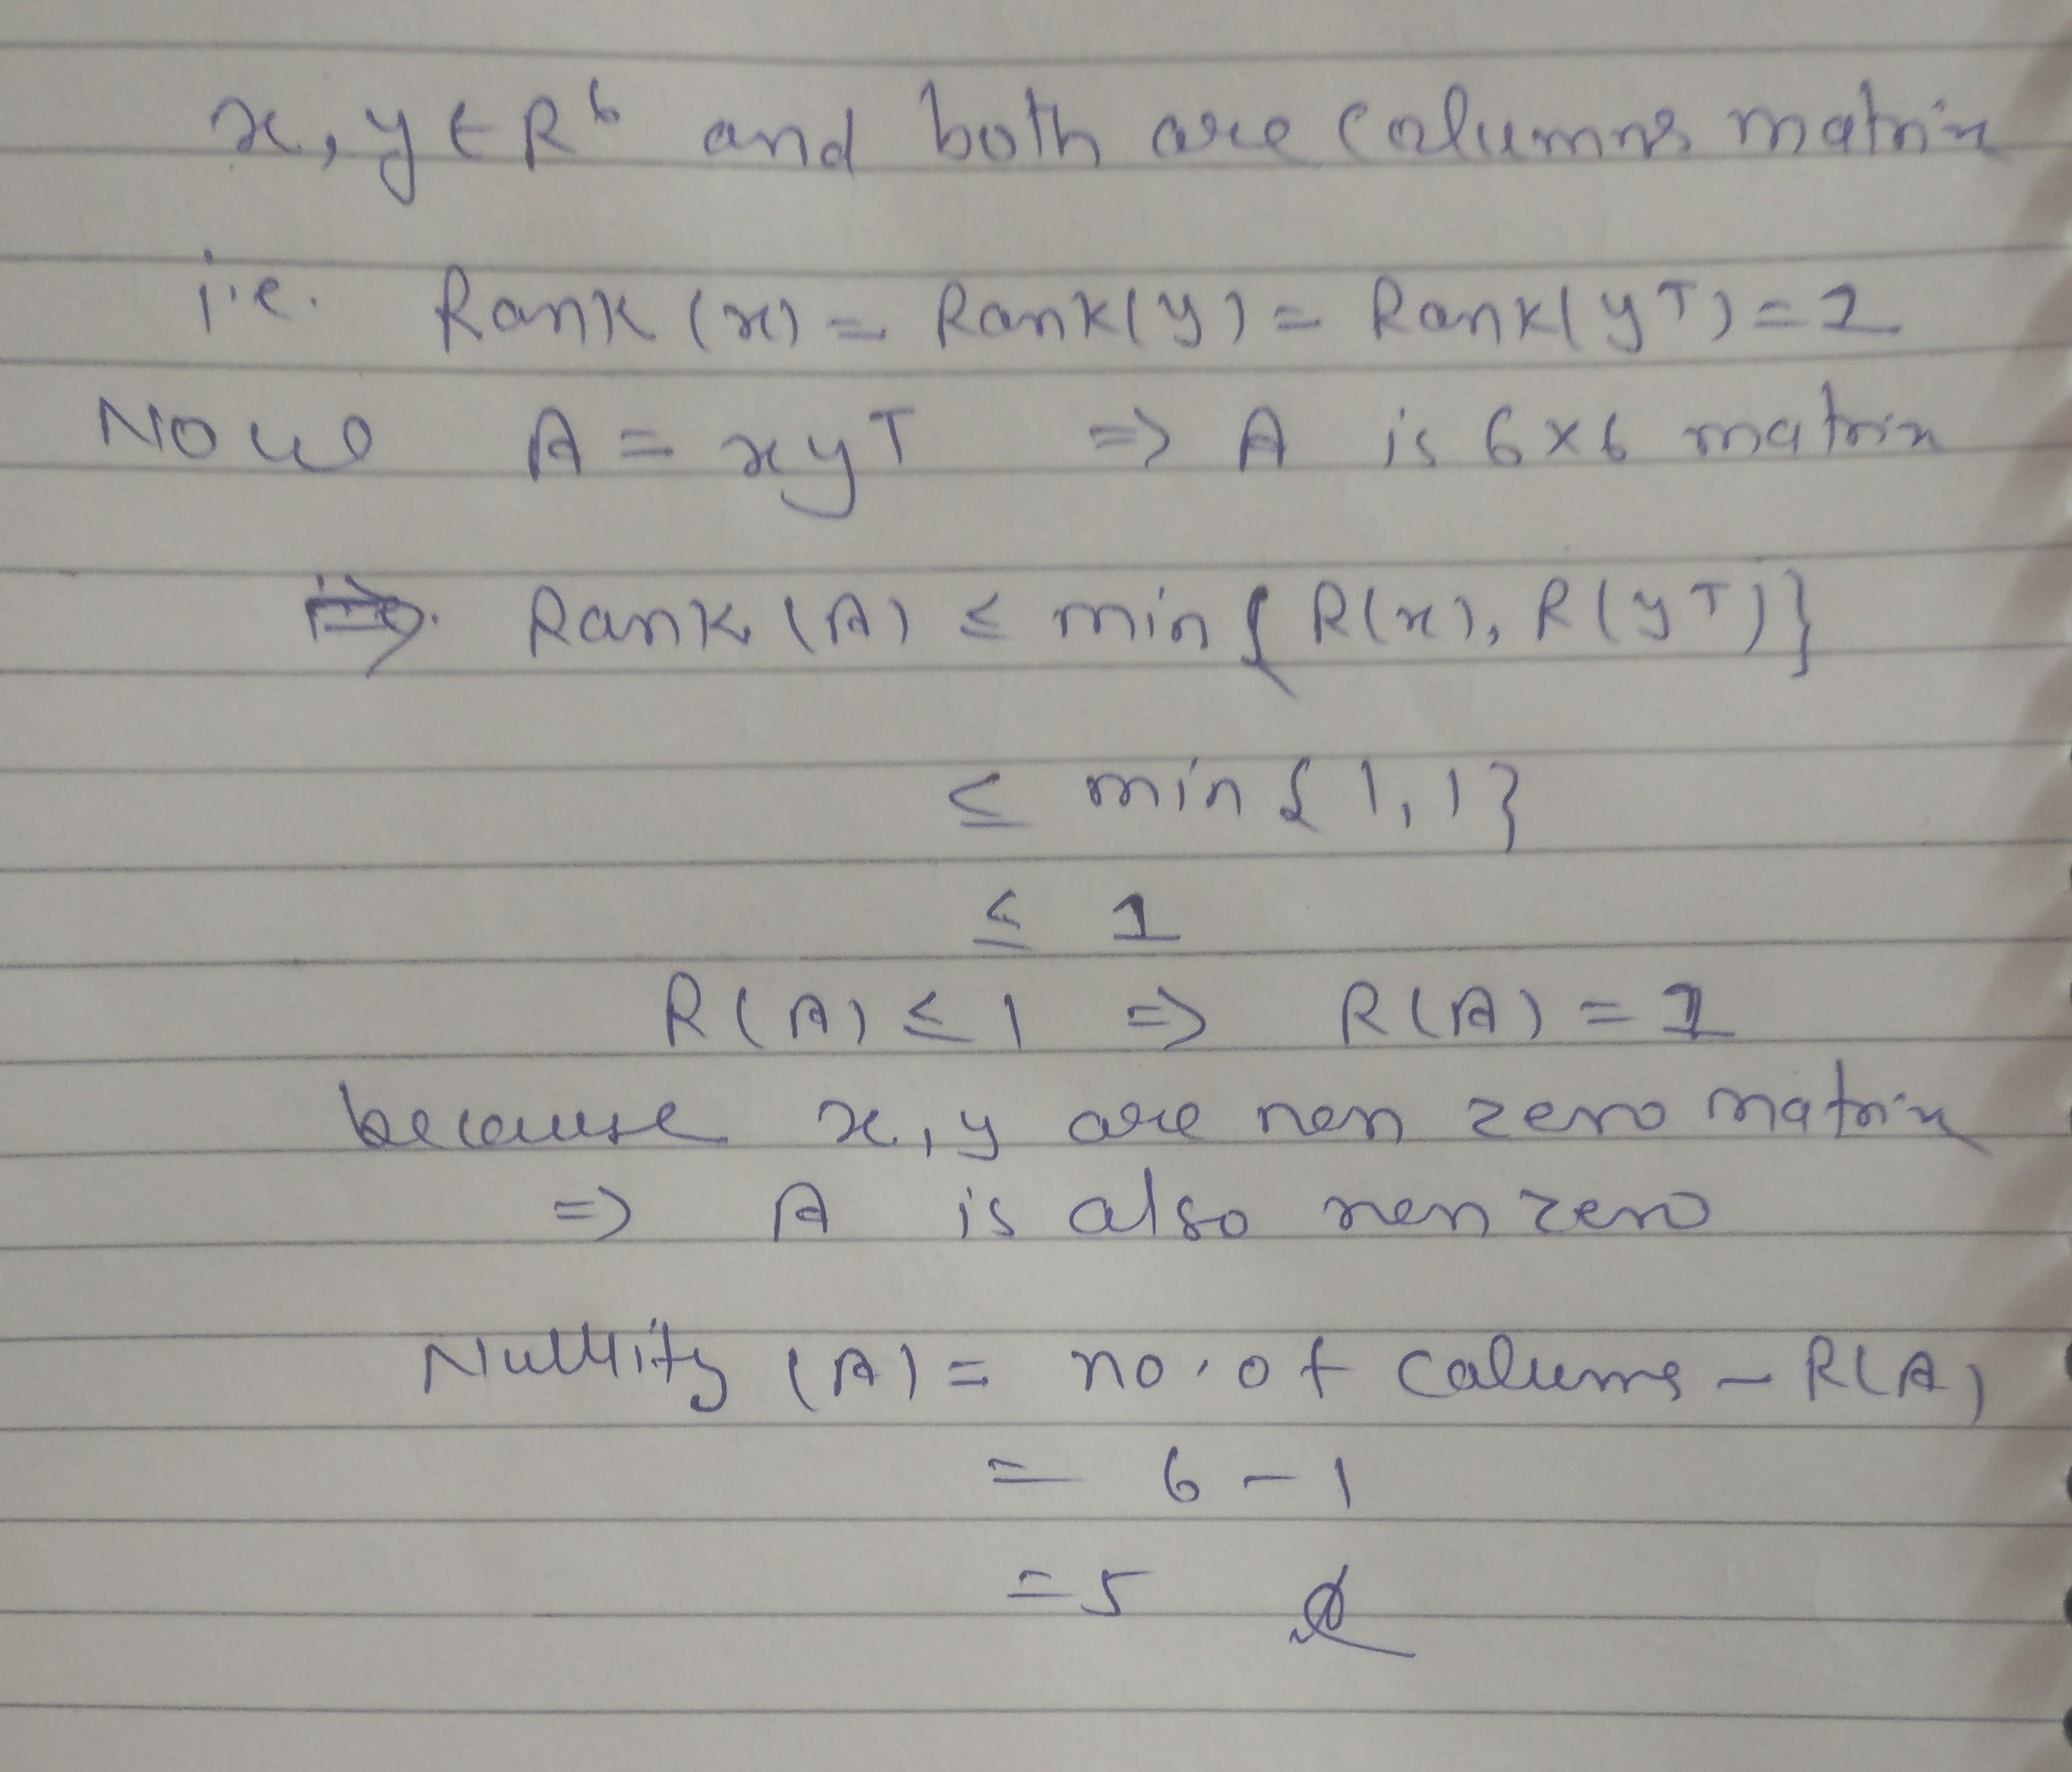 x, y ∈ R⁶ and both are columns matrix
i.e. Rank (x) = Rank(y) = Rank(yᵀ) = 1
Now A = xyᵀ => A is 6x6 matrix
=> Rank (A) ≤ min { R(x), R(yᵀ)}
≤ min { 1, 1}
≤ 1
R(A) ≤ 1 => R(A) = 1
because x, y are non zero matrix
=> A is also non zero
Nullity (A) = no. of colums - R(A)
= 6 - 1
= 5